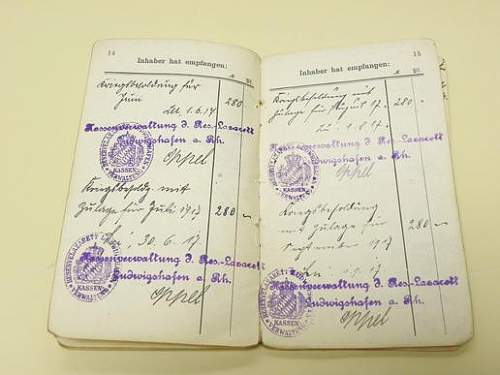 14
Inhaber hat empfangen:
Kriegsbesoldung für
Juni 280
1.6.17
Kassenverwaltung d. Res.-Lazarett
Ludwigshafen a. Rh.
Oppel
KASSEN
VERWALTUNG
Kriegsbesoldg. mit
Zulage für Juli 1917 280
30.6.17
Kassenverwaltung d. Res.-Lazarett
Ludwigshafen a. Rh.
Oppel
KASSEN
VERWALTUNG
15
Inhaber hat empfangen:
Kriegsbesoldung mit
Zulage für August 17 280
1.8.17
Kassenverwaltung d. Res.-Lazarett
Ludwigshafen a. Rh.
Oppel
KASSEN
VERWALTUNG
Kriegsbesoldung
mit Zulage für 280
September 1917
Kassenverwaltung d. Res.-Lazarett
Ludwigshafen a. Rh.
Oppel
KASSEN
VERWALTUNG